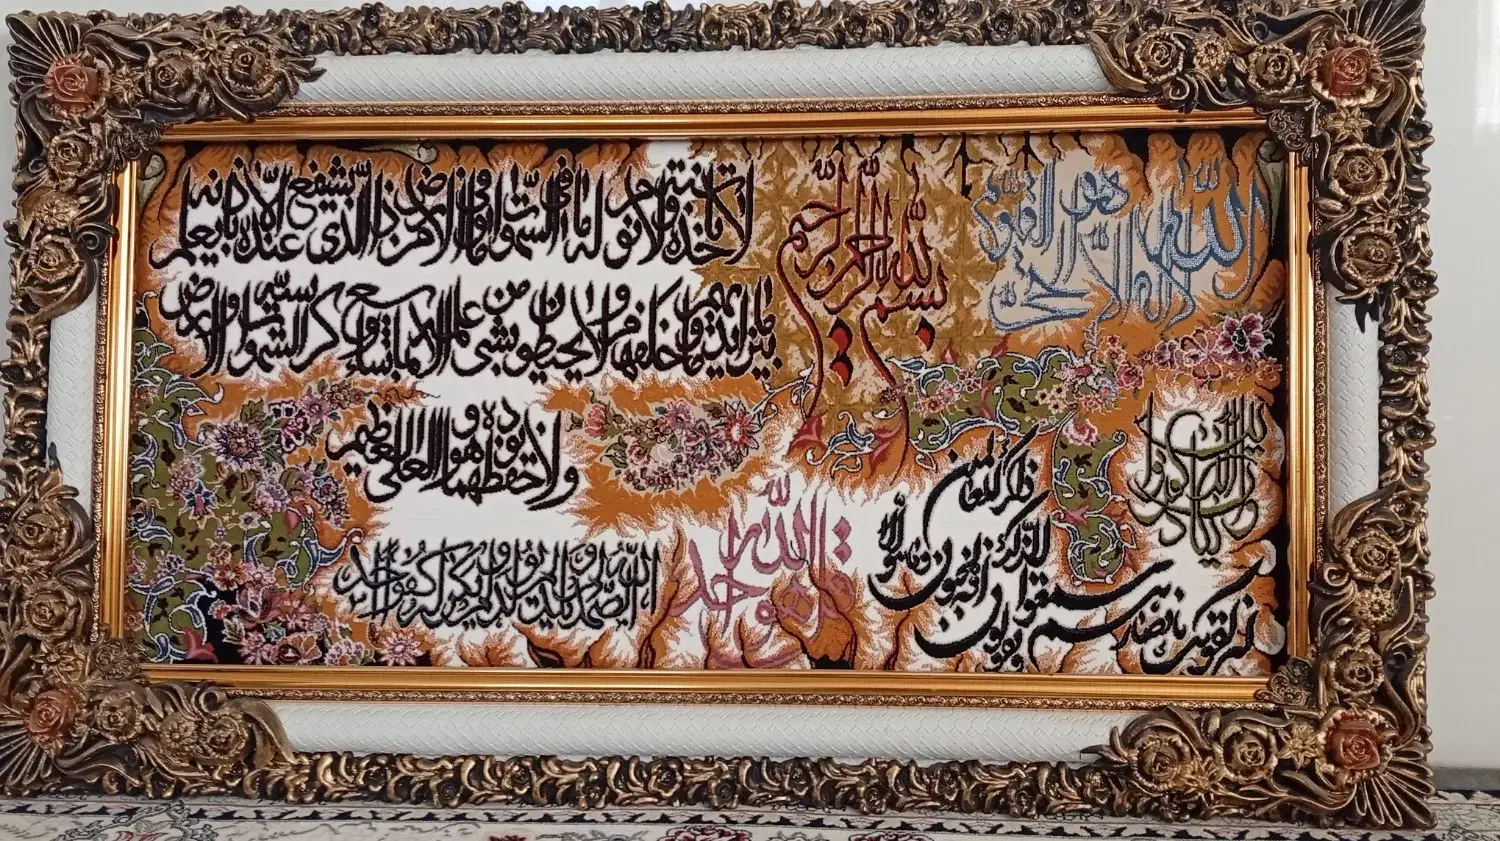 بسم الله الرحمن الرحیم
الله لا اله الا هو الحی القیوم
لا تاخذه سنة و لا نوم له ما فی السموات و ما فی الارض من ذا الذی یشفع عنده الا باذنه یعلم
ما بین ایدیهم و ما خلفهم و لا یحیطون بشیء من علمه الا بما شاء وسع کرسیه السموات و الارض
و لا یؤده حفظهما و هو العلی العظیم
و ان یکاد الذین کفروا
لیزلقونک بابصارهم لما سمعوا الذکر و یقولون انه لمجنون و ما هو الا
ذکر للعالمین
قل هو الله احد
الله الصمد لم یلد و لم یولد و لم یکن له کفوا احد